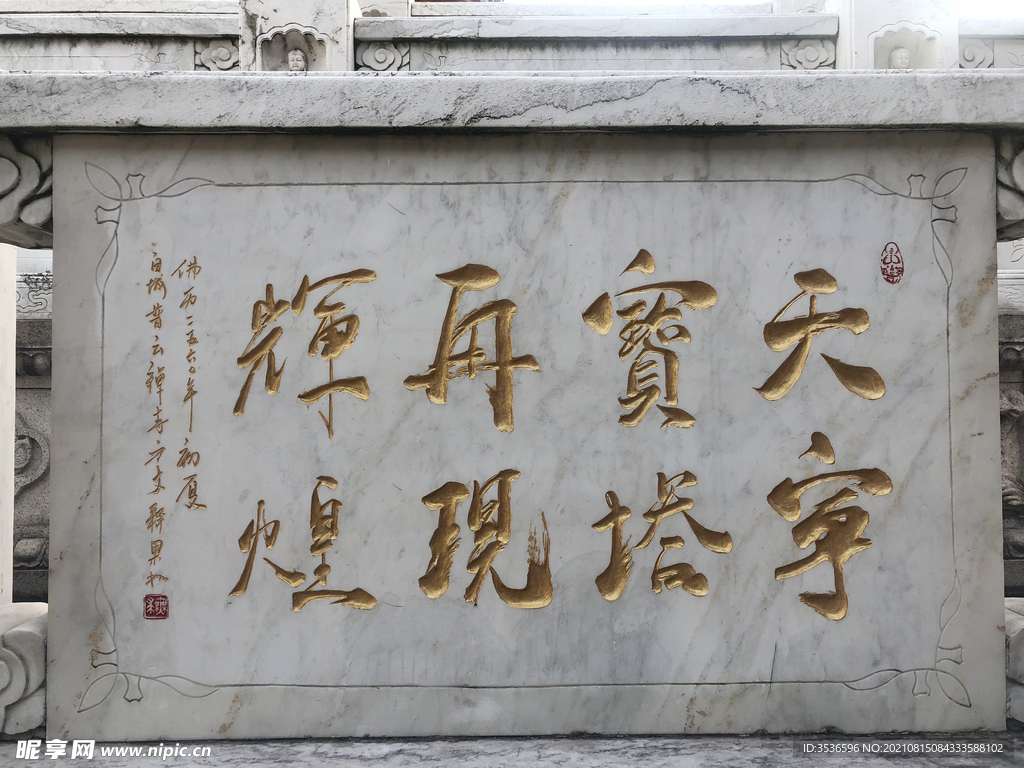 天寧
寶塔
再現
輝煌
佛历二五六〇年初夏
云禅寺方丈释果
昵享网 www.nipic.cn
ID:3536596 NO:20210815084333588102